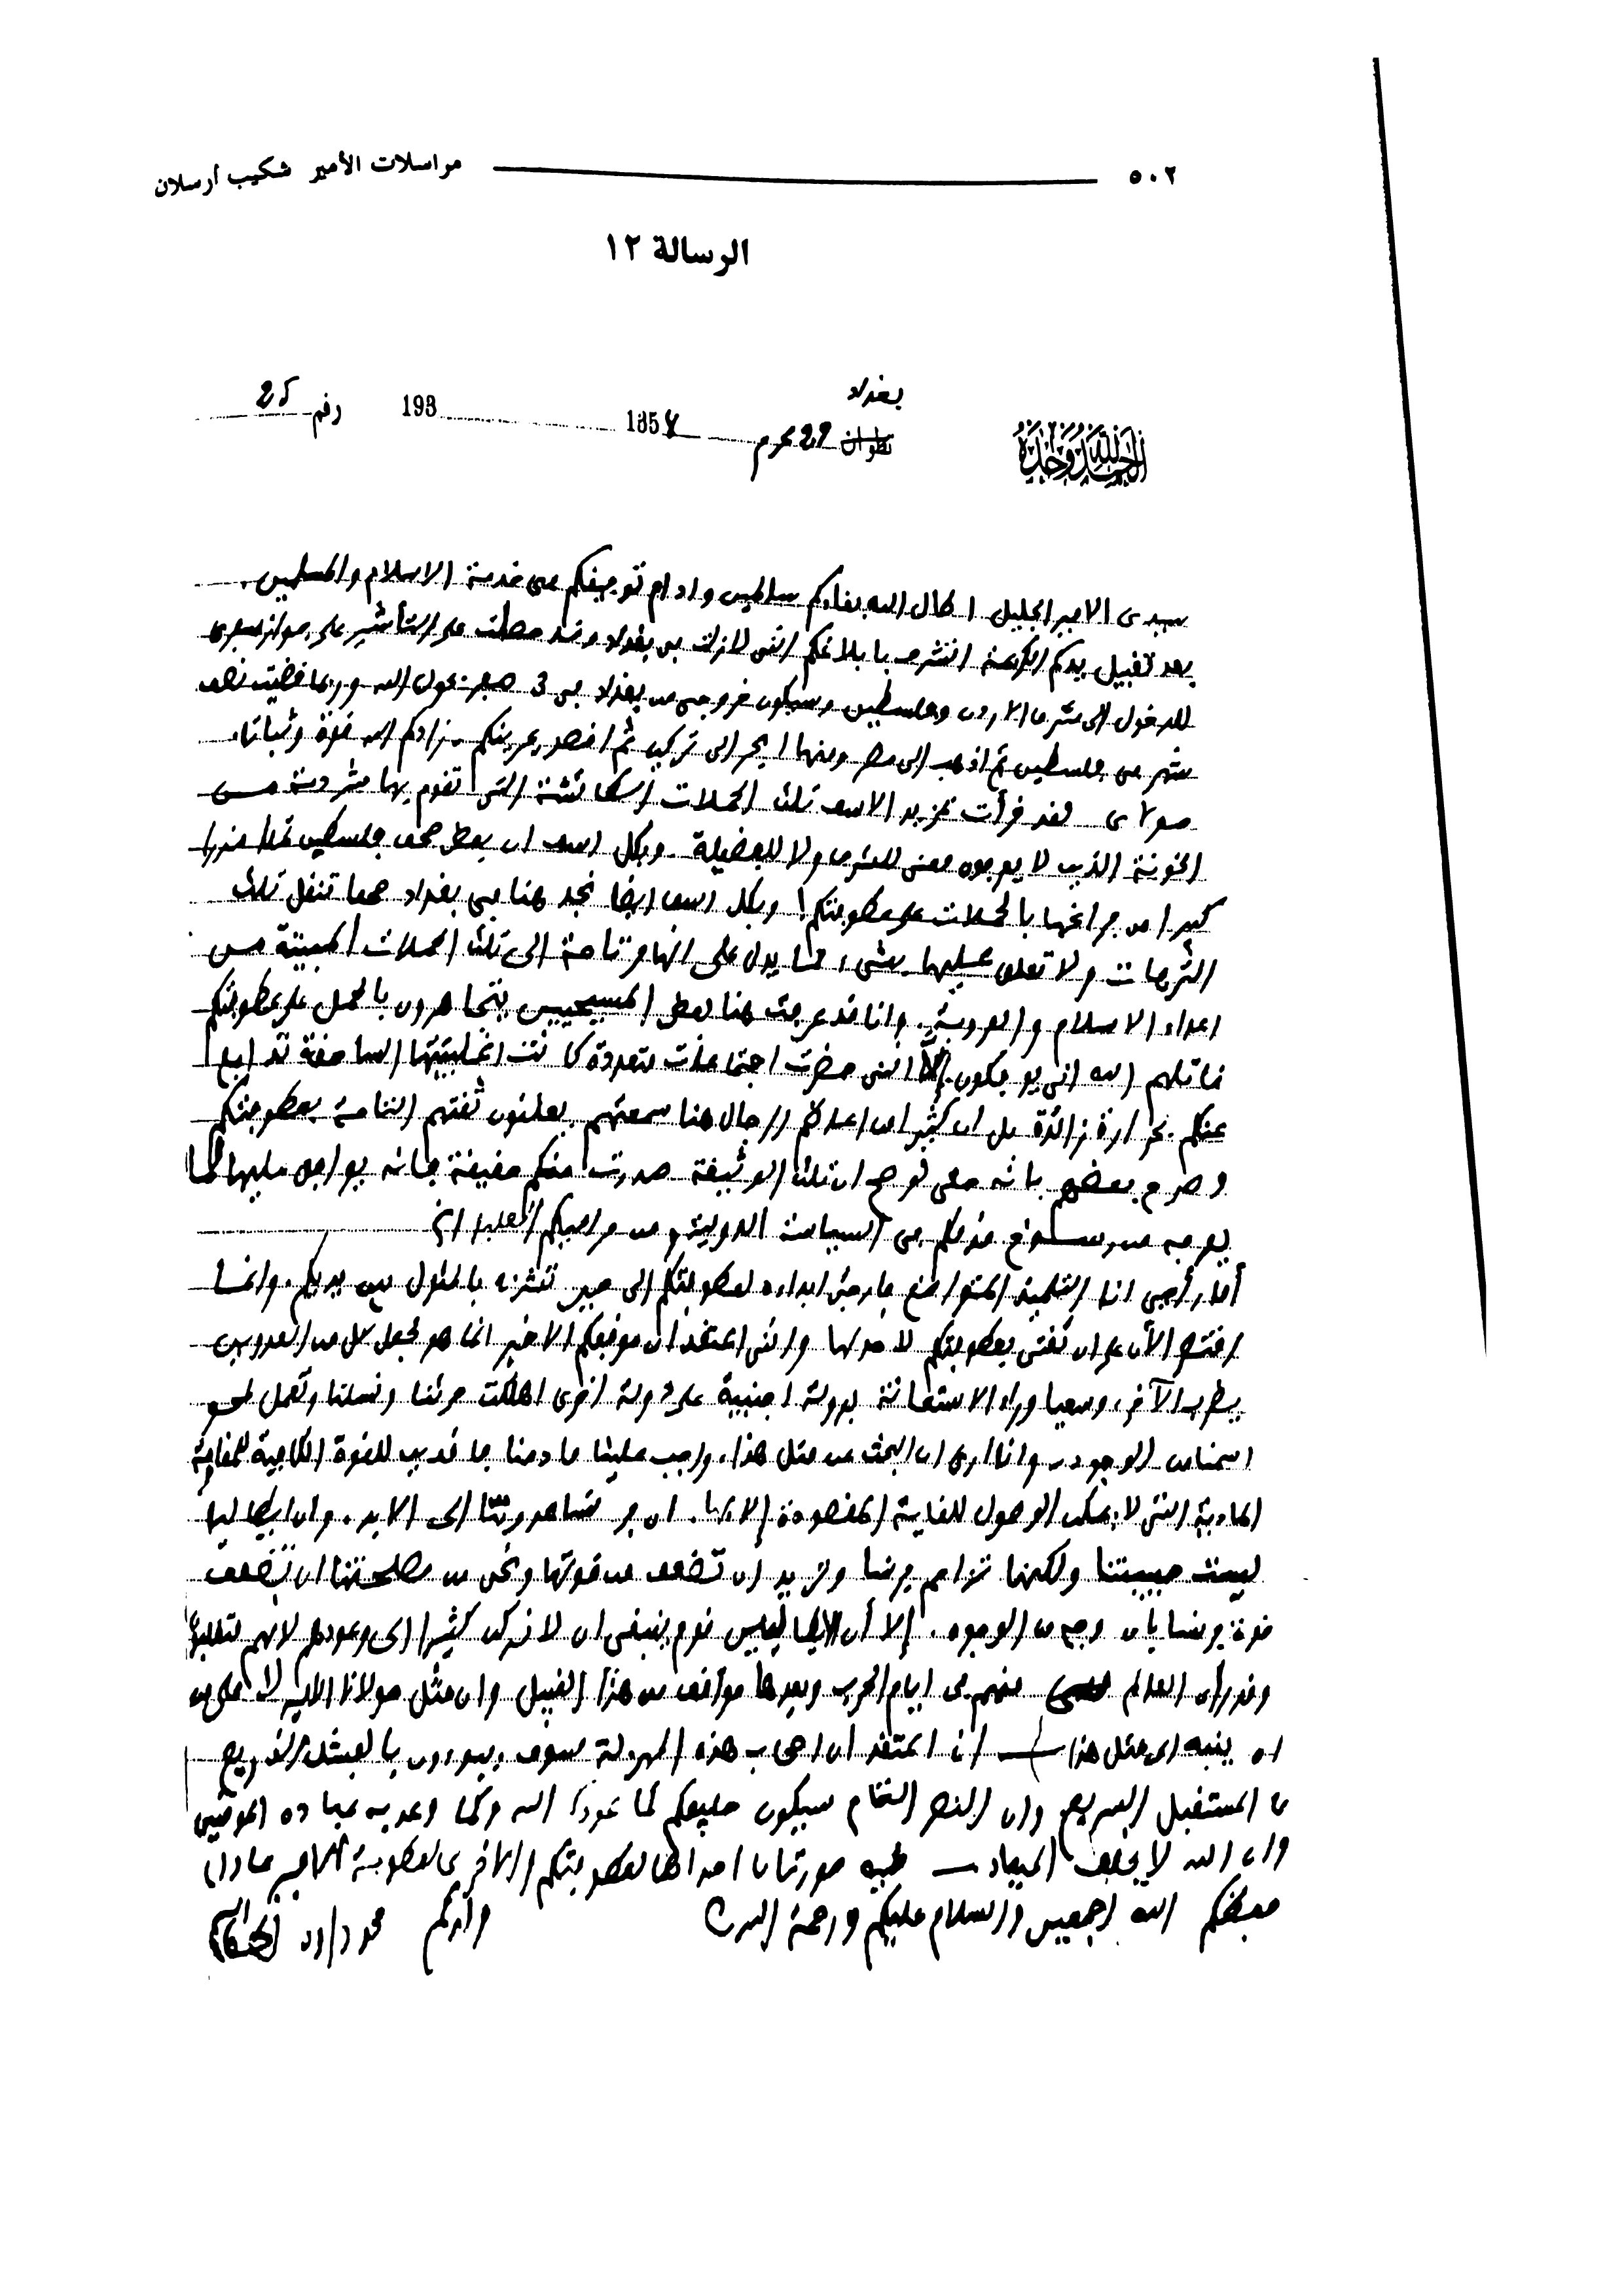 ٥٠٢ مراسلات الأمير شكيب أرسلان
الرسالة ١٢
الحمد لله وحده
بغداد
تطوان 29 محرم 1354 193 رقم 25
سيدى الامير الجليل اطال الله بقاءكم سالمين وادام توفيقكم على خدمة الاسلام والمسلمين.
بعد تقبيل يدكم الكريمة اتشرف بابلاغكم اننى لازلت فى بغداد وقد حصلت على التأشير على جواز سفرى
للدخول الى شرق الاردن وفلسطين وسيكون خروجى من بغداد فى 3 صفر بحول الله وربما قضيت نصف
شهر فى فلسطين ثم اذهب الى مصر ومنها ابحر الى تركيا ثم اقصد عرينكم. زادكم الله قوة وثباتا.
مولاى لقد قرأت بمزيد الاسف تلك الحملات الطائشة التى تقوم بها شرذمة من
الخونة الذين لا يعرفون معنى للشرف ولا للفضيلة. وبكل اسف ان بعض صحف فلسطين تملأ قدرا
كبيرا من فراغها بالحملات على عطوفتكم! وبكل اسف ايضا نجد هنا فى بغداد صحفا تنقل تلك
الترهات ولا تعلق عليها بشىء، مما يدل على انها مرتاحة الى تلك الحملات المبيتة من
اعداء الاسلام والعروبة. وانا قد عرفت هنا بعض المسيحيين يتجاهرون بالحمل على عطوفتكم
قاتلهم الله انى يوفكون. إلا اننى حضرت اجتماعات متعددة كانت اغلبيتها الساحقة تدافع
عنكم بحرارة زائدة بل ان كثيرا من اعلام الرجال هنا سمعتهم يعلنون ثقتهم التامة بعطوفتكم
وصرح بعضهم بانه حتى لو صح ان تلك الوثيقة صدرت منكم حقيقة فانه يوافق عليها لما
يعرفه من رسوخ قدمكم فى السياسة الدولية، ومن مراميكم العليا الخ
أما رأيى انا التلميذ المتواضع فارجئ ابداءه لعطوفتكم الى حين تشرفى بالمثول بين يديكم. وانما
اقتصر الآن على ان ثقتى بعطوفتكم لا حد لها واننى اعتقد ان موقفكم الاخير انما هو لجعل كل من العدوين
يضرب الآخر، وسعيا وراء الاستعانة بدولة اجنبية على دولة اخرى اهلكت حرثنا ونسلنا وتعمل لمحو
اسمنا من الوجود، وانا ارى ان البحث عن مثل هذا، واجب علينا ما دمنا فاقدين للقوة الكافية للمقاومة
المادية التى لا يمكن الوصول للغاية المقصودة إلا بها. ان فرنسا عدوتنا الى الابد. وان ايطاليا
ليست حبيبتنا ولكنها تزاحم فرنسا وتريد ان تضعف من قوتها ونحن من مصلحتنا ان تضعف
قوة فرنسا باى وجه من الوجوه. إلا أن الايطاليين قوم ينبغى ان لا نركن كثيرا الى وعودهم لانهم متقلبون
وقد رأى العالم منهم فى ايام الحرب وبعدها مواقف من هذا القبيل وان مثل مولانا الامير لا
ان ينبه الى مثل هذا انى اعتقد ان اصحاب هذه المهزلة سوف يبوءون بالفشل الذريع
فى المستقبل السريع وان النصر التام سيكون حليفكم كما عودكم الله وكما وعد به عباده المومنين
وان الله لا يخلف الميعاد طيه صورتان احداهما لعطوفتكم والاخرى لعطوفة الامير عادل
حفظكم الله اجمعين والسلام عليكم ورحمة الله ولدكم محمد داود